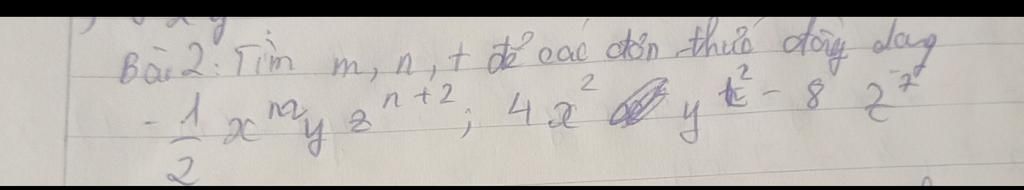 Bài 2: Tìm m, n, t để các đơn thức đồng dạng
- 1/2 x^m y z^{n+2}; 4x^2 y^{t^2 - 8} z^7